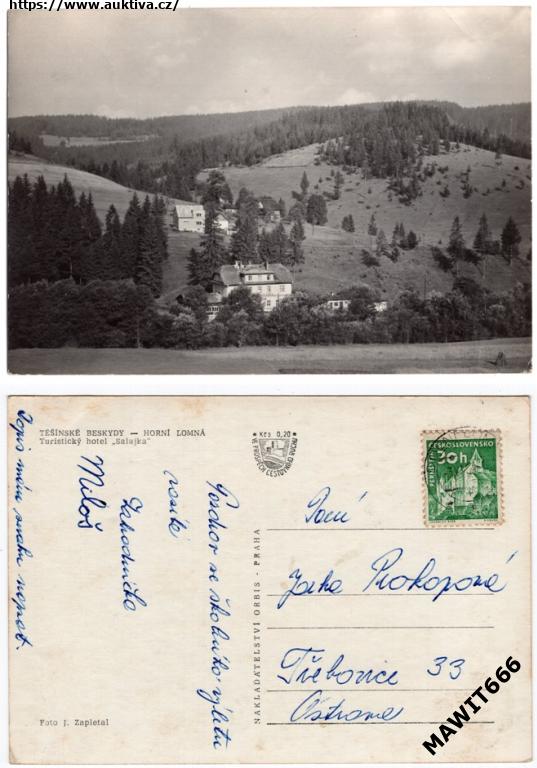 https://www.auktiva.cz/
TĚŠÍNSKÉ BESKYDY — HORNÍ LOMNÁ
Turistický hotel „Salajka"
Kčs 0,20
VE PROSPĚCH CESTOVNÍHO RUCHU
ČESKOSLOVENSKO
30h
PERNŠTEJN
Pozdrav ze školního výletu
Zahodníčka
Miloš
Dopis mám snahu napsat.
Paní
Jarka Prokopová
Třebovice 33
Ostrava
NAKLADATELSTVÍ ORBIS - PRAHA
Foto J. Zapletal
MAWIT666